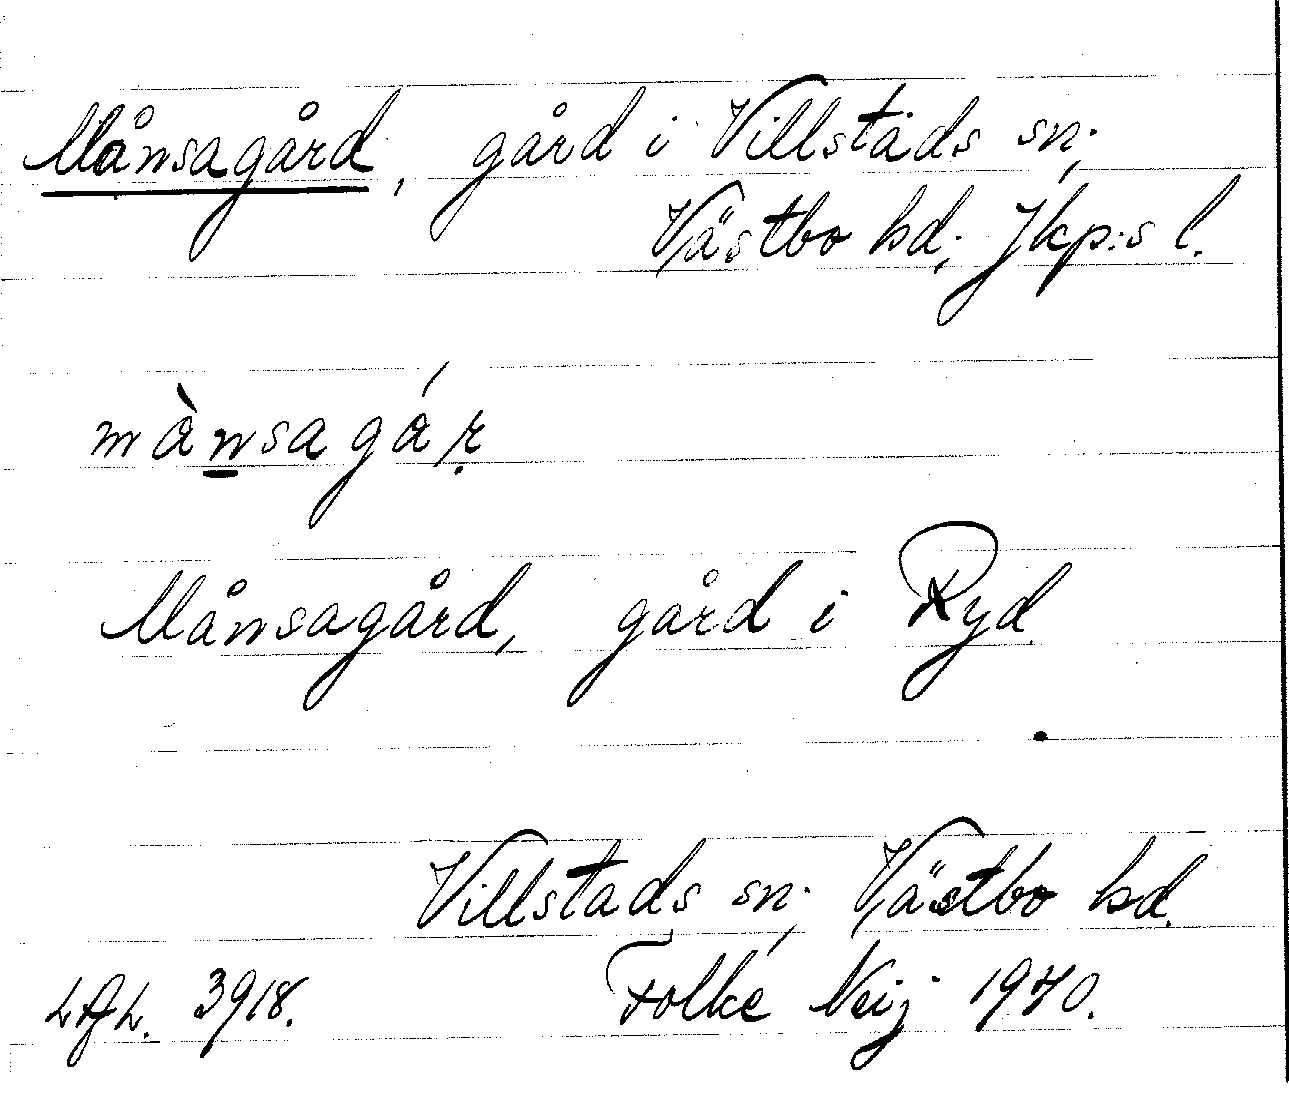 Månsagård, gård i Villstads sn,
Västbo hd, Jkp:s l.
mànsagáṛ
Månsagård, gård i Ryd
Villstads sn, Västbo hd.
3918. Folke Neij 1940.